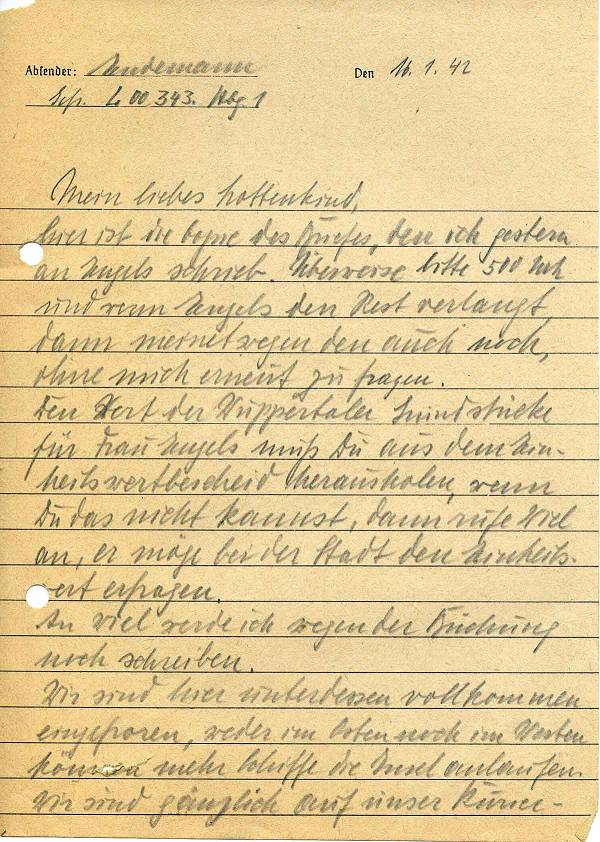 Absender: Lindemann Den 16.1.42
L 00 343.
Mein liebes Lottenkind,
hier ist die Copie des Briefes, den ich gestern
an Engels schrieb. Überweise bitte 500 Mk
und wenn Engels den Rest verlangt,
dann meinetwegen den auch noch,
ohne mich erneut zu fragen.
Den Wert der Wuppertaler Grundstücke
für Frau Engels muß Du aus dem Ein-
heitswertbescheid herausholen, wenn
Du das nicht kannst, dann rufe Viel
an, er möge bei der Stadt den Einheits-
wert erfragen.
An Viel werde ich wegen der Buchung
noch schreiben.
Wir sind hier unterdessen vollkommen
eingefroren, weder im Osten noch im Westen
können mehr Schiffe die Insel anlaufen.
Wir sind gänzlich auf unser Kurier-